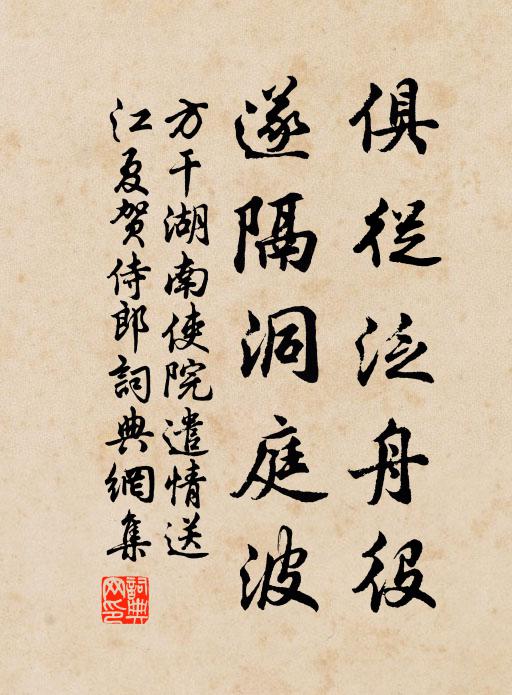 俱從泛舟役
遂隔洞庭波
方干湖南使院遣情送
江夏賀侍郎詞典網集
詞典
网印